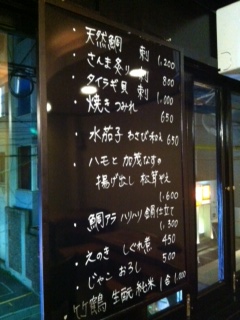 ・天然鯛 刺 1,200
・さんま炙り刺 800
・タイラギ貝 刺 1,000
・焼きつみれ
650
・水茄子 わさび和え 650
・ハモと加茂なすの
揚げ出し 松茸ぞえ
1,600
・鯛アラ ハリハリ鍋仕立て
1,300
・えのき しぐれ煮 450
・じゃこ おろし 500
竹鶴 生酛純米 1合 1,000